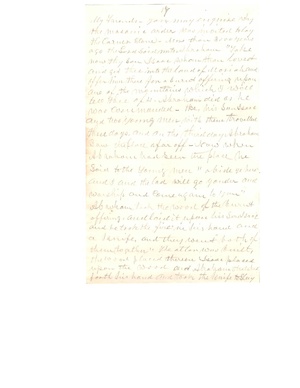 My friends you may
the masonic order was not
the Corner Stone. More than
ago the Lord said unto Abraham "Take
now thy Son Isaac whom thou lovest
and get thee into the land of Moriah and
offer him there for a burnt offering upon
one of the mountains which I will
tell thee of" Abraham did as he
was commanded - his Son Isaac
and two young men with them travelled
three days and on the third day Abraham
saw the place afar off - Now when
Abraham had seen the place he
said to the young men "abide ye here
and I and the lad will go yonder and
worship and come again to you"
Abraham took the wood of the burnt
offering and laid it upon his Son Isaac
and he took the fire in his hand and
a knife and they went both of
them together" The altar was built
the wood placed thereon Isaac placed
upon the wood and Abraham stretched
forth his hand and took the knife to slay